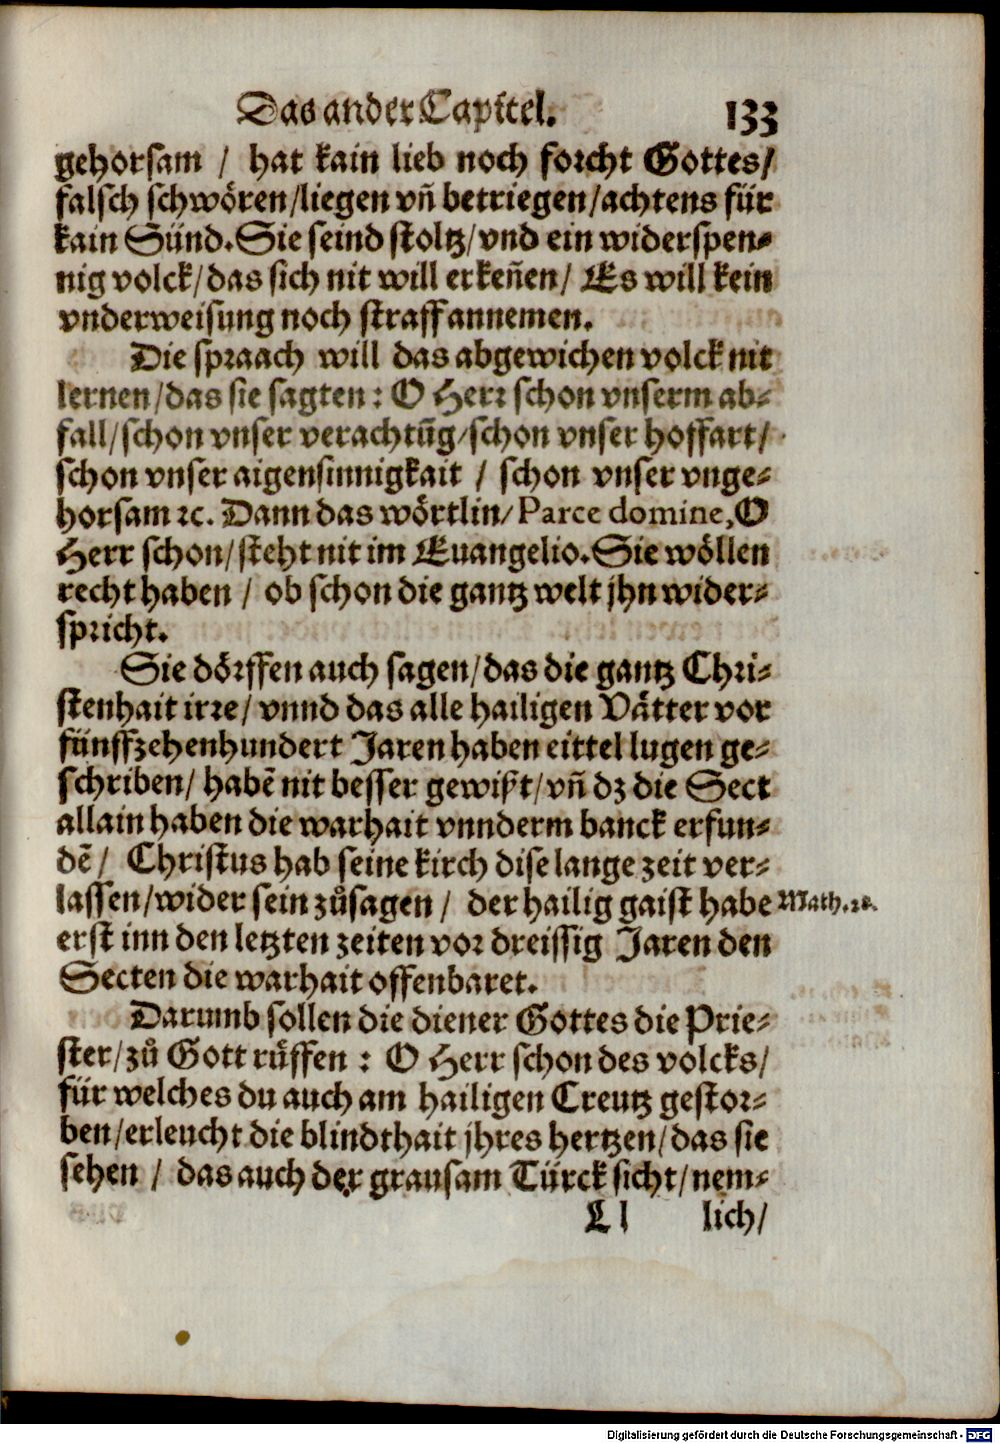 Das ander Capitel. 133
gehorsam / hat kain lieb noch forcht Gottes/
falsch schwören/liegen vñ betriegen/achtens für
kain Sünd.Sie seind stoltz/vnd ein widerspen-
nig volck/das sich nit will erkeñen/ Es will kein
vnderweisung noch straff annemen.
Die spraach will das abgewichen volck nit
lernen/das sie sagten: O Herr schon vnserm ab-
fall/schon vnser verachtũg/schon vnser hoffart/
schon vnser aigensinnigkait / schon vnser vnge-
horsam ꝛc. Dann das wörtlin/Parce domine,O
Herr schon/steht nit im Euangelio.Sie wöllen
recht haben / ob schon die gantz welt jhn wider-
spricht.
Sie dörffen auch sagen/das die gantz Chri-
stenhait irre/ vnnd das alle hailigen Vätter vor
fünffzehenhundert Jaren haben eittel lugen ge-
schriben/ habẽ nit besser gewißt/vñ dz die Sect
allain haben die warhait vnnderm banck erfun-
dẽ/ Christus hab seine kirch dise lange zeit ver-
lassen/wider sein zůsagen/ der hailig gaist habe
Math.28.
erst inn den letzten zeiten vor dreissig Jaren den
Secten die warhait offenbaret.
Darumb sollen die diener Gottes die Prie-
ster/zů Gott rüffen: O Herr schon des volcks/
für welches du auch am hailigen Creutz gestor-
ben/erleucht die blindthait jhres hertzen/das sie
sehen / das auch der grausam Türck sicht/nem-
Ll lich/
Digitalisierung gefördert durch die Deutsche Forschungsgemeinschaft - DFG